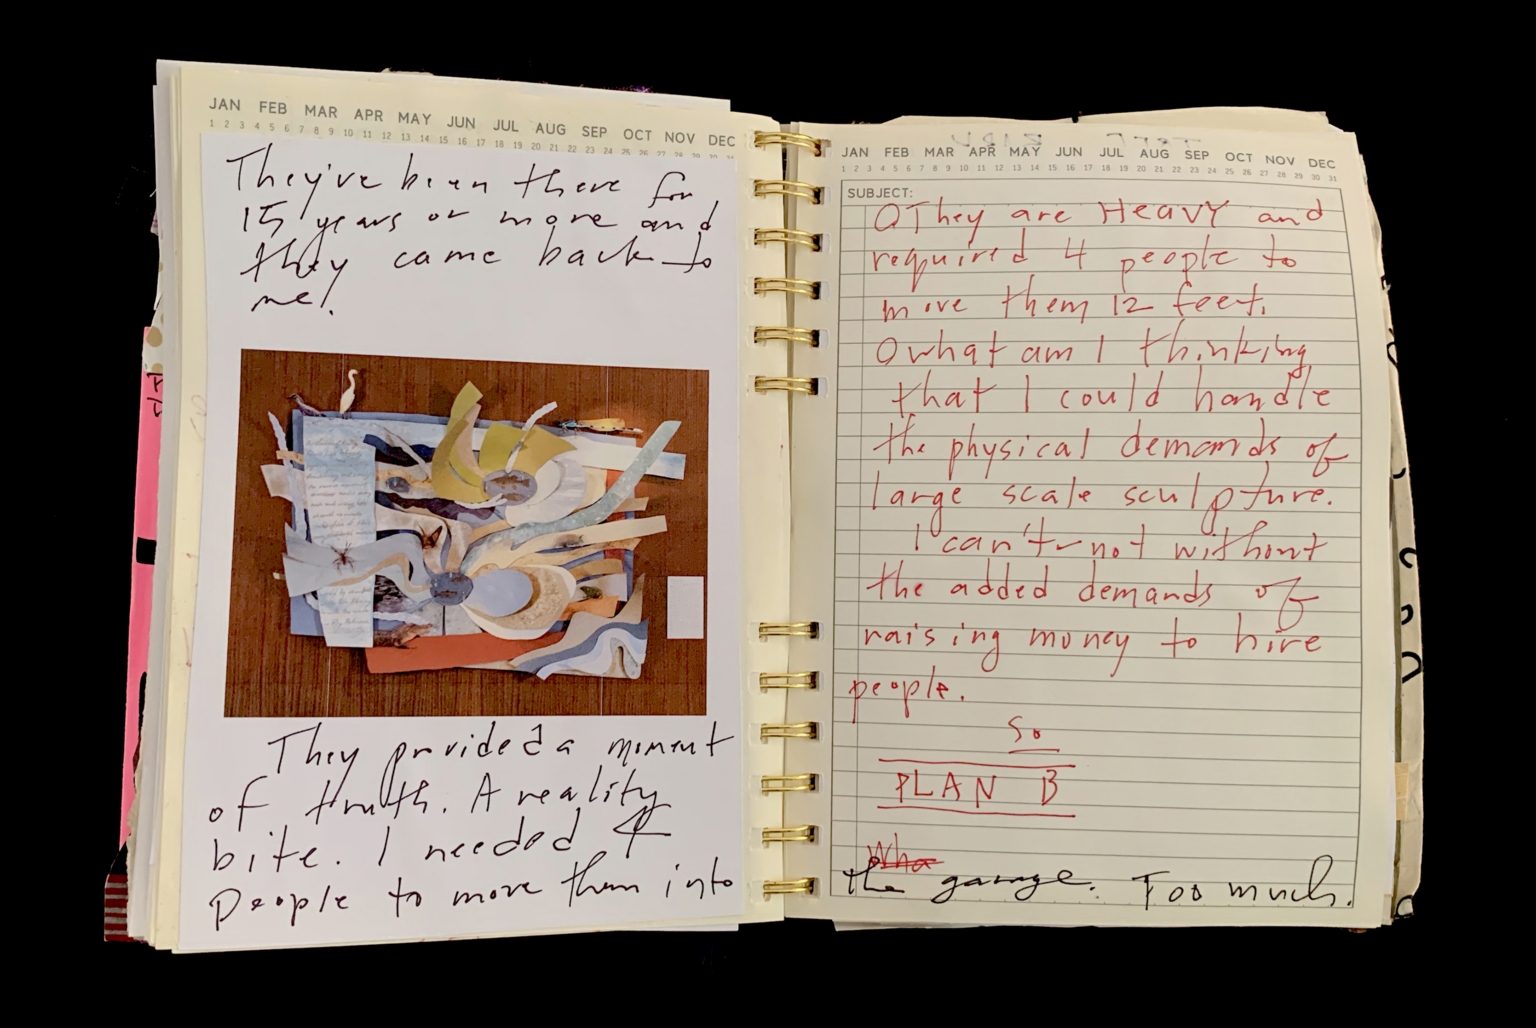 JAN FEB MAR APR MAY JUN JUL AUG SEP OCT NOV DEC
1 2 3 4 5 6 7 8 9 10 11 12 13 14 15 16 17 18 19 20 21 22 23 24 25 26 27 28 29 30 31
They've been there for
15 years or more and
they came back to
me!
They provided a moment
of truth. A reality
bite. I needed 4
people to move them into
JAN FEB MAR APR MAY JUN JUL AUG SEP OCT NOV DEC
1 2 3 4 5 6 7 8 9 10 11 12 13 14 15 16 17 18 19 20 21 22 23 24 25 26 27 28 29 30 31
SUBJECT:
O They are HEAVY and
required 4 people to
move them 12 feet.
O what am I thinking
that I could handle
the physical demands of
large scale sculpture.
I can't – not without
the added demands of
raising money to hire
people.
So
PLAN B
Wha
the garage. Too much.